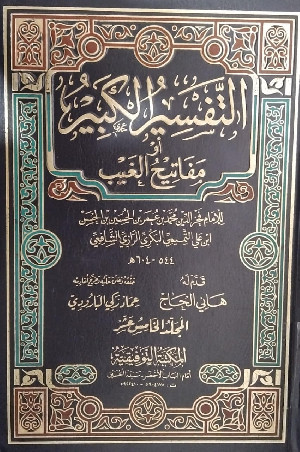 التفسير الكبير
أو
مفاتيح الغيب
للإمام فخر الدين محمد بن عمر بن الحسين بن الحسن
ابن علي التميمي البكري الرازي الشافعي
٥٤٤ - ٦٠٤ هـ
قدم له
هاني الحاج
حققه وعلق عليه وخرج أحاديثه
عماد زكي البارودي
المجلد الخامس عشر
المكتبة التوفيقية
أمام الباب الأخضر - سيدنا الحسين